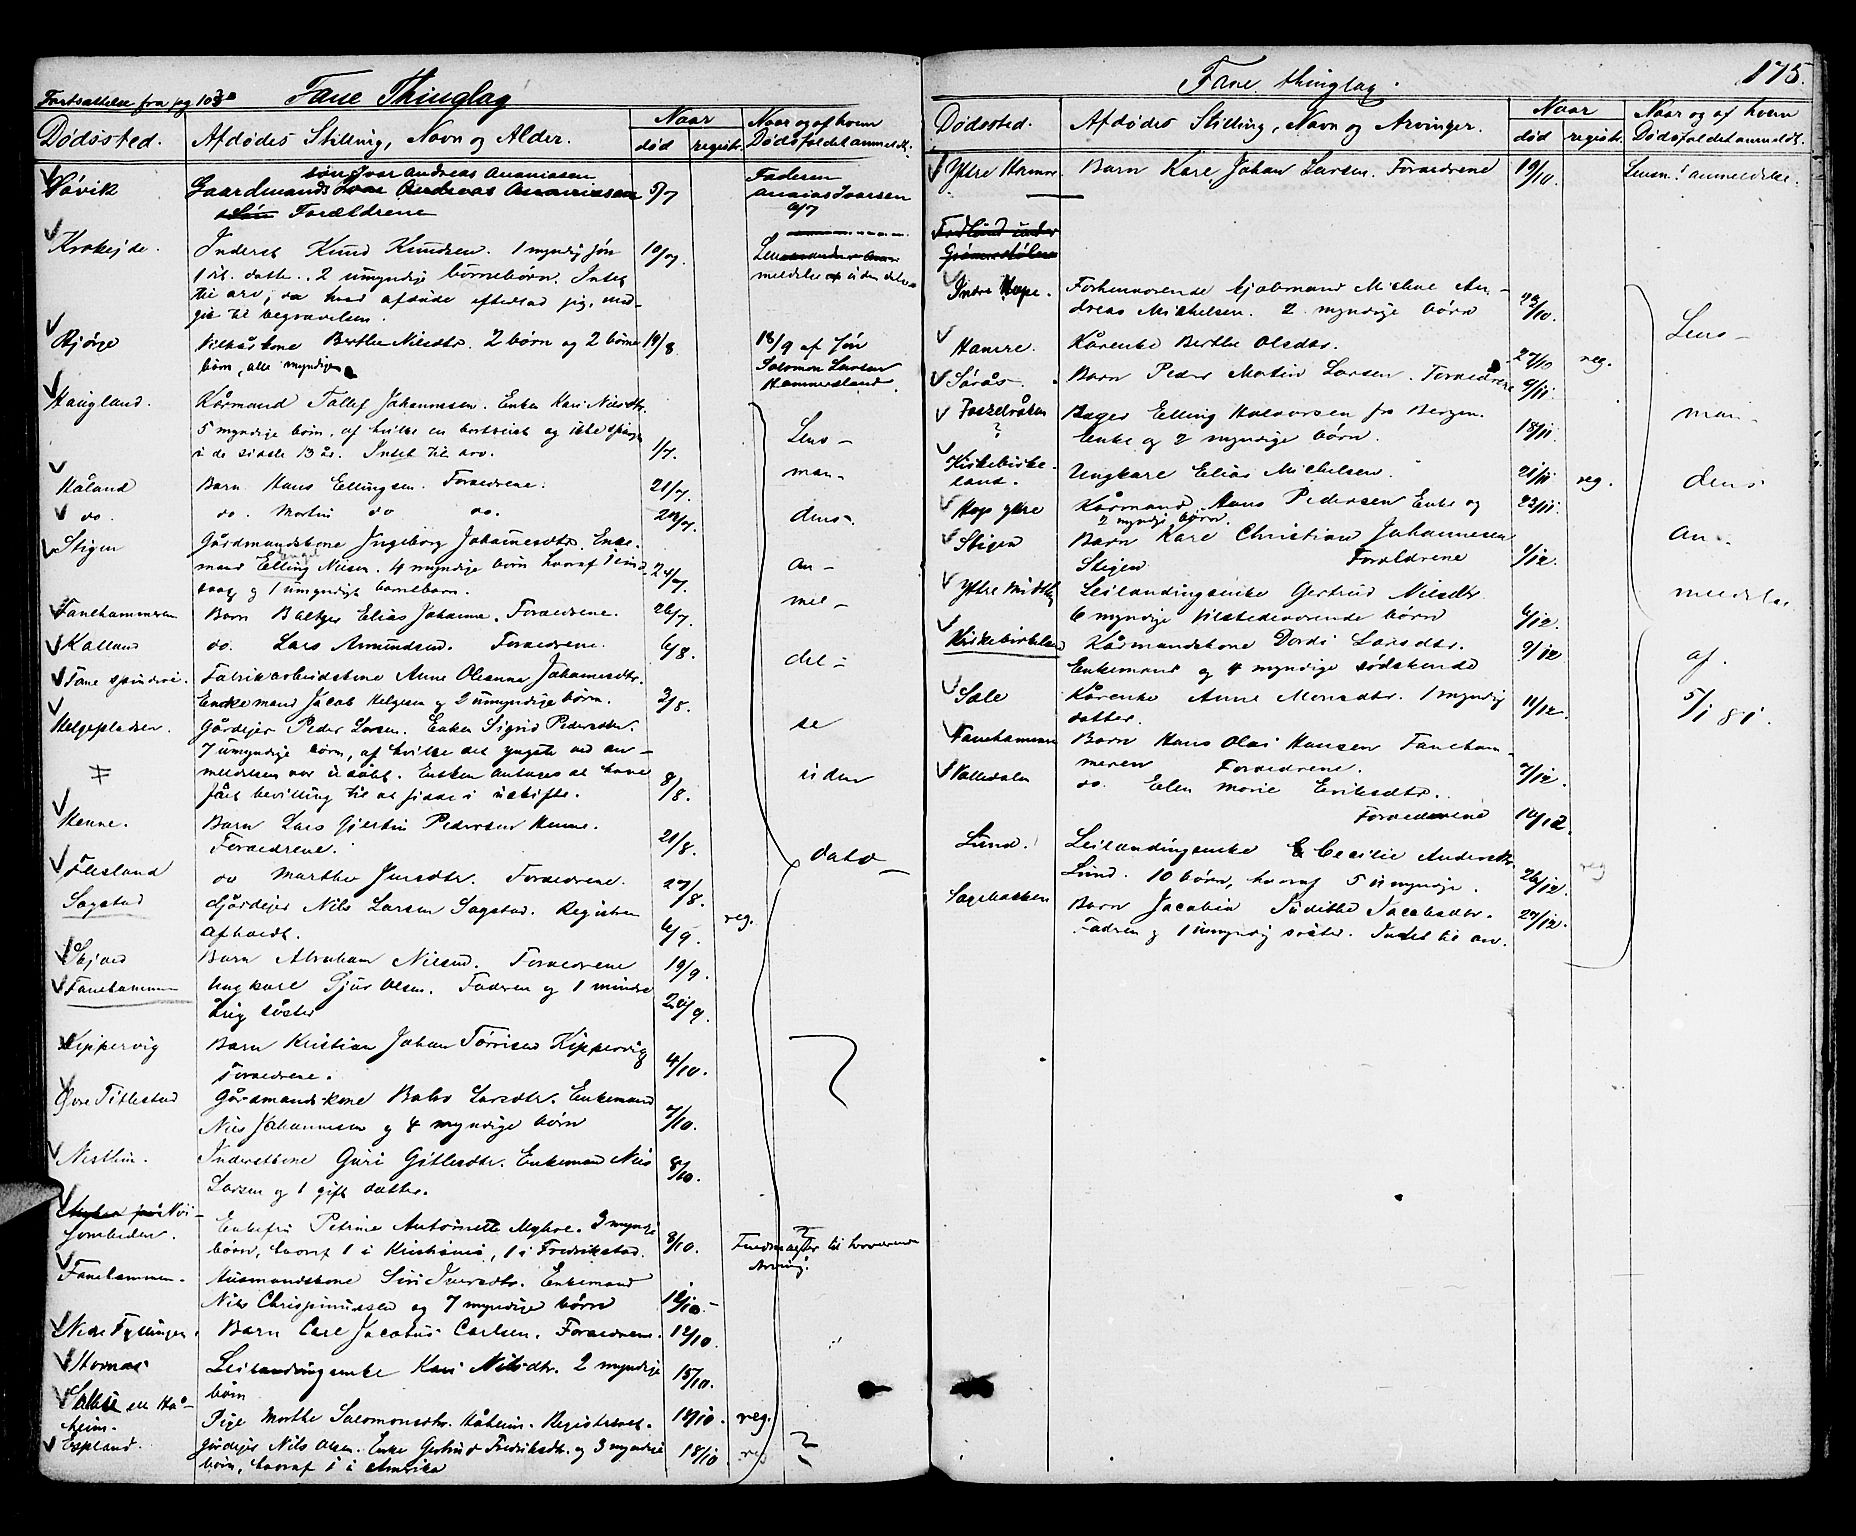 Fortsættelse fra pg 103
Fane Thinglag
Dødssted.
Afdødes Stilling, Navn og Alder.
Naar
død
registr.
Naar og af hvem
Dødsfaldet anmeldt.
søn Ivar Andreas Ananiassen
Søvik
Gaardmands Ivar Andreas Ananiassen
5/7
Faderen
Ananias Ivarsen
Søn Forældrene
Krokejde.
Inderst Knud Knudsen. 1 myndig søn
10/7.
1 datter. 2 umyndige børnebørn. Intet
meldelse uden dato
til arv, da hvad afdøde efterlod sig, med-
gik til begravelsen.
Bjørge
Vilkårskone Berthe Nilsdtr. 2 børn og 2 børne
19/8.
18/9 af søn
børn, alle myndige
Salomon Larsen
Hammersland.
Haugland.
Kårmand Tollef Johannessen. Enken Kari Nilsdtr.
5 myndige børn, af hvilke en bortreist og ikke spurgt
i de sidste 13 år. Intet til arv.
1/7.
Lens-
Håland
Barn Hans Ellingsen. Forældrene.
21/7.
man-
do.
do. Martin do do.
dens-
Stigen
Gårdmandskone Ingeborg Johannesdtr. Enke-
mand Elling Nilsen. 4 myndige børn hvoraf 1 sind
24/7.
an-
svag og 1 umyndigt barnebarn.
Fanehammeren
Barn Baltzer Elias Johanne. Forældrene.
26/7.
mel-
Kalland
do. Lars Amundsen. Forældrene.
6/8.
Fane spinderi.
Fabrikarbeiderskone Anne Oleanna Johannesdtr.
del-
Enkemand Jacob Helgesen og 2 umyndige børn.
3/8.
Helgepladsen.
Gårdejer Peder Larsen. Enken Sigrid Pedersdtr.
se
7 umyndige børn, af hvilke det yngste ved an-
meldelsen var udøbt. Enken antages at have
8/8.
uden
fået bevilling til at sidde i uskifte.
Henne.
Barn Lars Gjertin Pedersen Henne.
Forældrene.
21/8.
dato
Flesland
do Marthe Jensdtr. Forældrene.
27/8.
Sagstad
Gårdejer Nils Larsen Sagstad. Registren
afholdt.
6/9.
reg.
Skjold
Barn Abraham Nilsen. Forældrene
19/9.
Fanehammeren
Ungkarl Sjur Olsen. Fadren og 1 mindre-
årig søster
20/9.
Kippervig
Barn Kristian Johan Tørrisen Kippervig
Forældrene.
4/10.
Øvre Titlestad
Gårdmandskone Barbo Larsdtr. Enkemand
Nils Johannesen og 4 myndige børn
7/10.
Nestun.
Inderstkone Guri Gitlesdtr. Enkemand Nils
8/10.
Larsen og 1 gift datter.
Enkefru Petrine Antoinette Myhre. 3 myndige
børn, hvoraf 1 i Kristiania, 1 i Fredrikstad.
8/10.
Arving.
Fanehammeren.
Husmandskone Siri Iversdtr. Enkemand
Nils Chrispinussen og 7 myndige børn
12/10.
Nedre Fyllingen.
Barn Carl Jacobus Carlsen. Forældrene.
12/10.
Hornnæs
Leilændingsenke Kari Nilsdtr. 2 myndige
15/10.
børn
Pige Marthe Salomonsdtr. Håheim. Registreret.
reg.
Espeland.
Gårdejer Nils Olsen. Enke Gertrud Fredriksdtr. og 3 myndige
18/10
reg
børn, hvoraf 1 i Amerika
175.
Fane thinglag.
Dødssted.
Afdødes Stilling, Navn og Arvinger.
Naar
død
registr.
Naar og af hvem
Dødsfaldet anmeldt.
Ytre Hamre.
Barn Karl Johan Larsen. Forældrene
19/10.
Lensm. anmeldelse.
Indre Hope.
Forhenværende Gjøbmand Michael An-
dreas Michelsen. 2 myndige børn
22/10.
Lens-
Hamre.
Kårenke Berthe Olsdtr.
27/10
reg.
Sørås.
Barn Peder Martin Larsen. Forældrene
9/11.
man-
Bager Elling Halvorsen fra Bergen.
Enke og 2 myndige børn.
18/11.
Kirkebirke-
land.
Ungkarl Elias Michelsen.
21/11
reg.
dens
Hop ytre
Kårmand Hans Pedersen Enke og
22/11.
2 myndige børn.
Stigen
Barn Karl Christian Johannesen
an-
Stigen Forældrene
1/12.
Ytre Midtby
Leilændingsenke Gertrud Nilsdtr.
meldelse.
6 myndige tilstedeværende børn
6/12.
Kirkebirkeland
Kårmandskone Dordi Larsdtr.
9/12
af.
Enkemand og 4 myndige sødskende
Sæle
Kårenke Anne Monsdtr. 1 myndig
11/12.
5/1 81.
datter.
Fanehammeren
Barn Hans Olai Hansen Faneham-
meren Forældrene.
7/12.
Kalledalen
do. Elen Marie Eriksdtr.
Forældrene
10/12.
Lund.
Leilændingsenke Cecilie Andersdtr.
reg
Lund. 10 børn, hvoraf 5 umyndige.
26/12.
Sagebakken
Barn Jacobia Judithe Jacobsdtr.
27/12.
Fadren og 1 umyndig søster. Intet til arv.